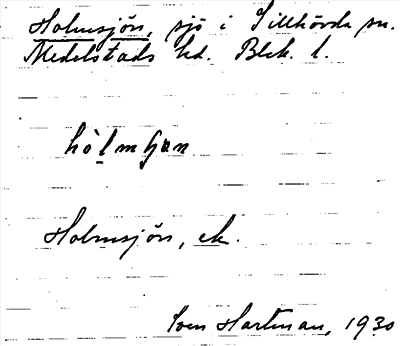 Holmsjön, sjö i Tillhövda sn.
Medelstads hd. Blek. l.
Holmsjön, ek.
Sven Hartman, 1930